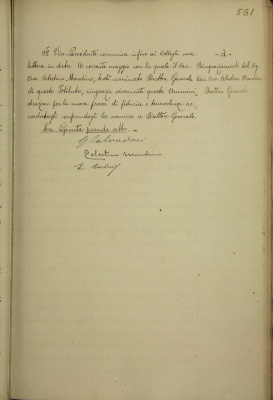 561
Il Vice-Presidente comunica infine ai Colleghi una
lettera in data 10 corrente maggio con la quale il Cav.
Celestino Mondino, testè nominato Direttore Generale
di questo Istituto, ringrazia vivamente questa Ammini-
strazione per la nuova prova di fiducia e benevolenza ac-
cordatagli conferendogli la nomina a Direttore Generale.
La Giunta prende atto. -
- d -
Ringraziamenti del
Celestino Mondino
Direttore Generale.
G. Salvadori
Celestino Mondino